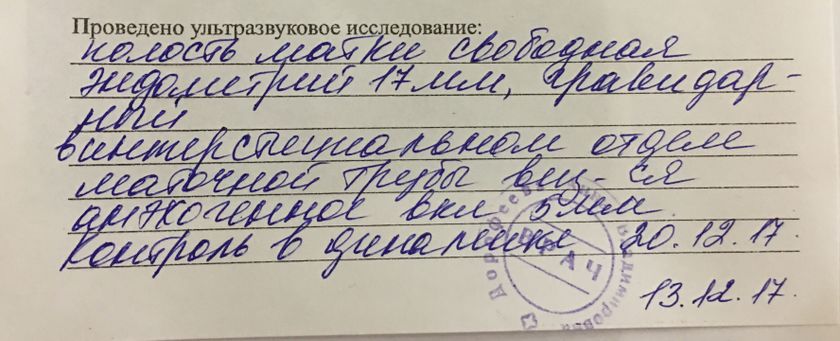 Проведено ультразвуковое исследование:
полость матки свободная
эндометрий 17 мм, гравидар-
ный
в интерстициальном отделе
маточной трубы виз-ся
анэхогенное вкл 5 мм
Контроль в динамике 20.12.17.
13.12.17.
ВРАЧ